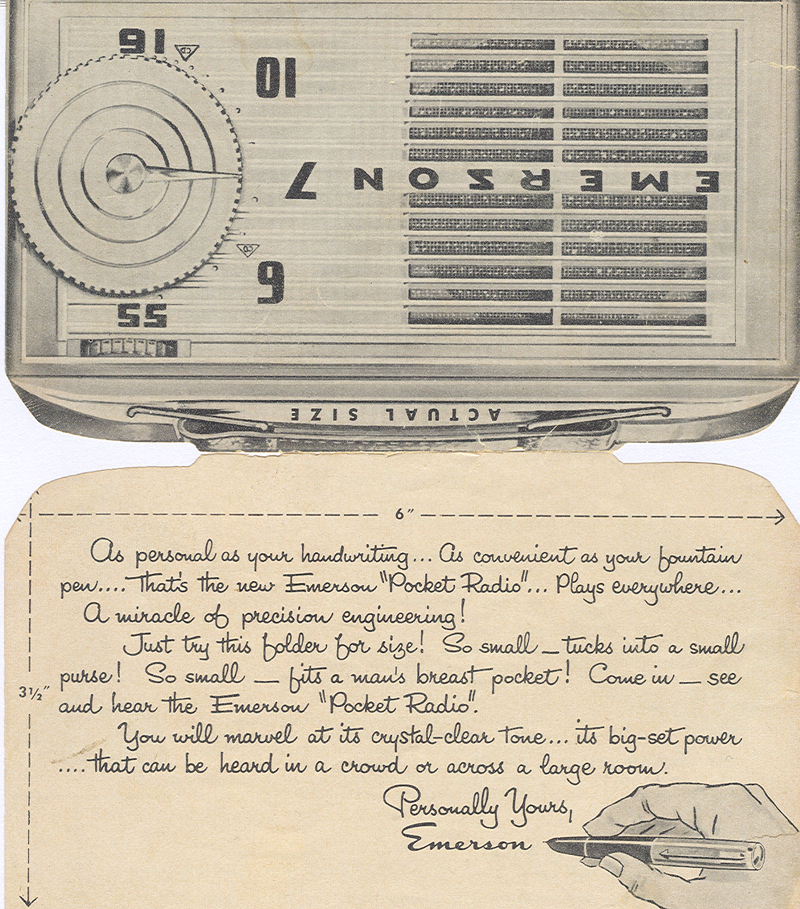 16
CD
10
EMERSON
7
CD
6
55
ACTUAL SIZE
6"
As personal as your handwriting... As convenient as your fountain
pen.... That's the new Emerson "Pocket Radio"... Plays everywhere...
A miracle of precision engineering!
Just try this folder for size! So small — tucks into a small
purse! So small — fits a man's breast pocket! Come in — see
and hear the Emerson "Pocket Radio".
3 1/2"
You will marvel at its crystal-clear tone... its big-set power
....that can be heard in a crowd or across a large room.
Personally Yours,
Emerson